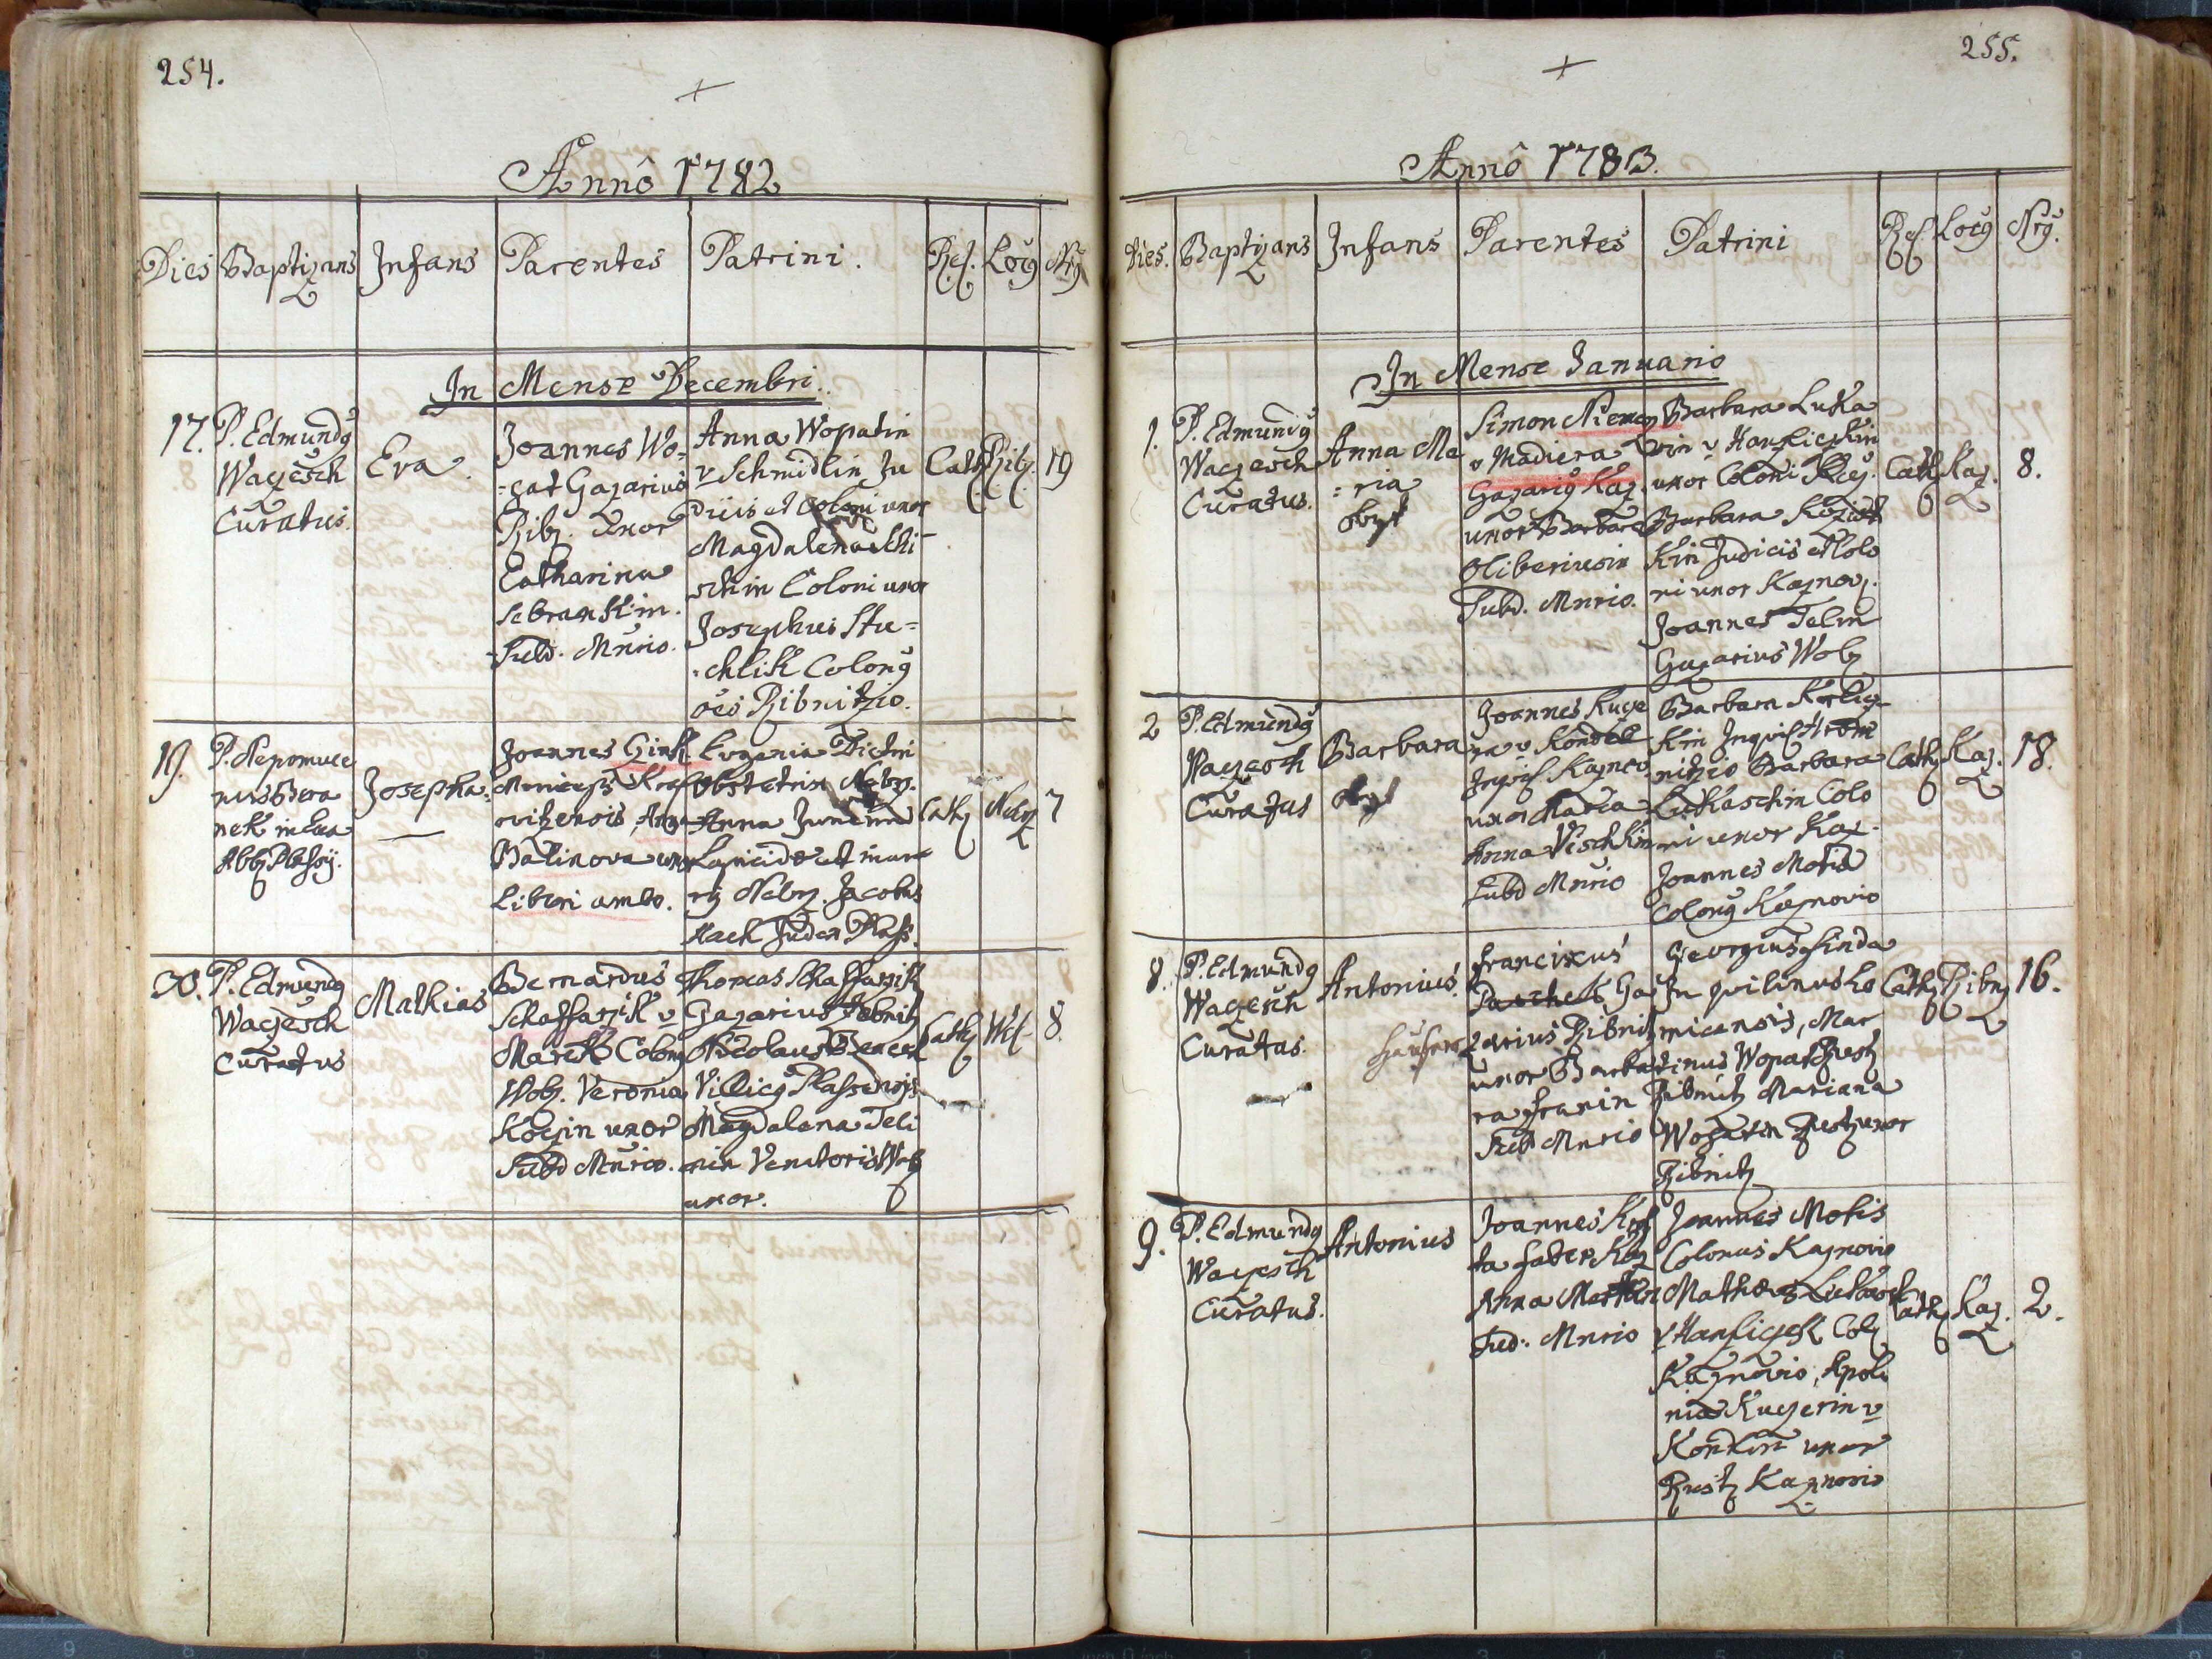 254.
Annô 1782
Dies Baptizans Infans Parentes Patrini. Rel. Locq Nrq
In Mense Decembri.
17. P. Edmundq
Waczesch
Curatus.
Eva.
Joannes Wo=
=zat Gazarius
Ribz. Uxor
Catharina
Sebrankin.
Subd. Mnrio.
Anna Wopatin
v Schmidlin Ju
diis et Coloni uxor
Magdalena Schi
schin Coloni uxor
Josephus Stu=
=chlik Colonq
oẽs Ribnitzio.
Cath Ribz. 19
19. P. Nepomuce
nus Bera
nek in Exa
Abb Plassy.
Josepha.
Joannes Gink
Kral
ovitzensis, Anna
Balinova uxor
Liberi ambo.
Eugenia Dietri
Obstetrix Nebrz.
Anna
Lapicidæ et mura
rij Nebrz. Jacobus
Hach Judex Plass.
Cath Nebrz 7
20. P. Edmundq
Waczesch
Curatus
Mathias
Bernardus
Schaffarzik v
Marek Colonq
Wobz. Veronica
Koczin uxor
Subd Mnrio.
Thomas Schaffarzik
Gazarius Rebnitz
Nicolaus Beneck
Villicq Plassensis
Magdalena Teli
nin Venatoris Wobz
uxor.
Cath Wob. 8.
255.
Annô 1783.
Dies. Baptizans Infans Parentes Patrini Rel. Locq Nrq.
In Mense Januario
1. P. Edmundq
Waczesch
Curatus.
Anna Ma
=ria
obyt
Simon Niemecz
v Madiera
Gazariq Kaz.
uxor Barbara
Oliberiusin
Subd. Mnrio.
Barbara Luka
vin v Hanziczkin
uxor Coloni Kaz.
Barbara Kozisch
kin Judicis et Colo
ni uxor Kaznov.
Joannes Telin
Gazarius Wobz
Cath Kaz. 8.
2 P. Edmundq
Waczesch
Curatus
Barbara
obyt
Joannes Kuçe
ra v Kondel
Inquil Kaznov
uxor Maria
Anna Vischkin
Subd Mnrio
Barbara
kin Inquil Hrom
nitzio Barbara
Lukaschin Colo
ni uxor Kaz.
Joannes Motis
Colonq Kaznovio
Cath Kaz. 18.
8. P. Edmundq
Waczesch
Curatus.
Antonius.
Franciscus
Paschek Ga
zarius Ribnitz
uxor Barba
ra Franin
Sub Mnrio
Georgius Sinda
Inquilinus Lo
micensis, Mar
tinus Wopat Rust
Ribnitz Mariana
Wozatin Rust uxor
Ribnitz
Cath Ribnz 16.
9. P. Edmundq
Waczesch
Curatus.
Antonius
Joannes
ta Faber Kaz
Anna
Sud: Mnrio
Joannes Motis
Colonus Kaznovio
Mathæus Lukasch
v Hanziczek Col
Kaznovio, Apolo
nia Kuczerin v
Kondlin uxor
Rust Kaznovio
Cath Kaz. 2.